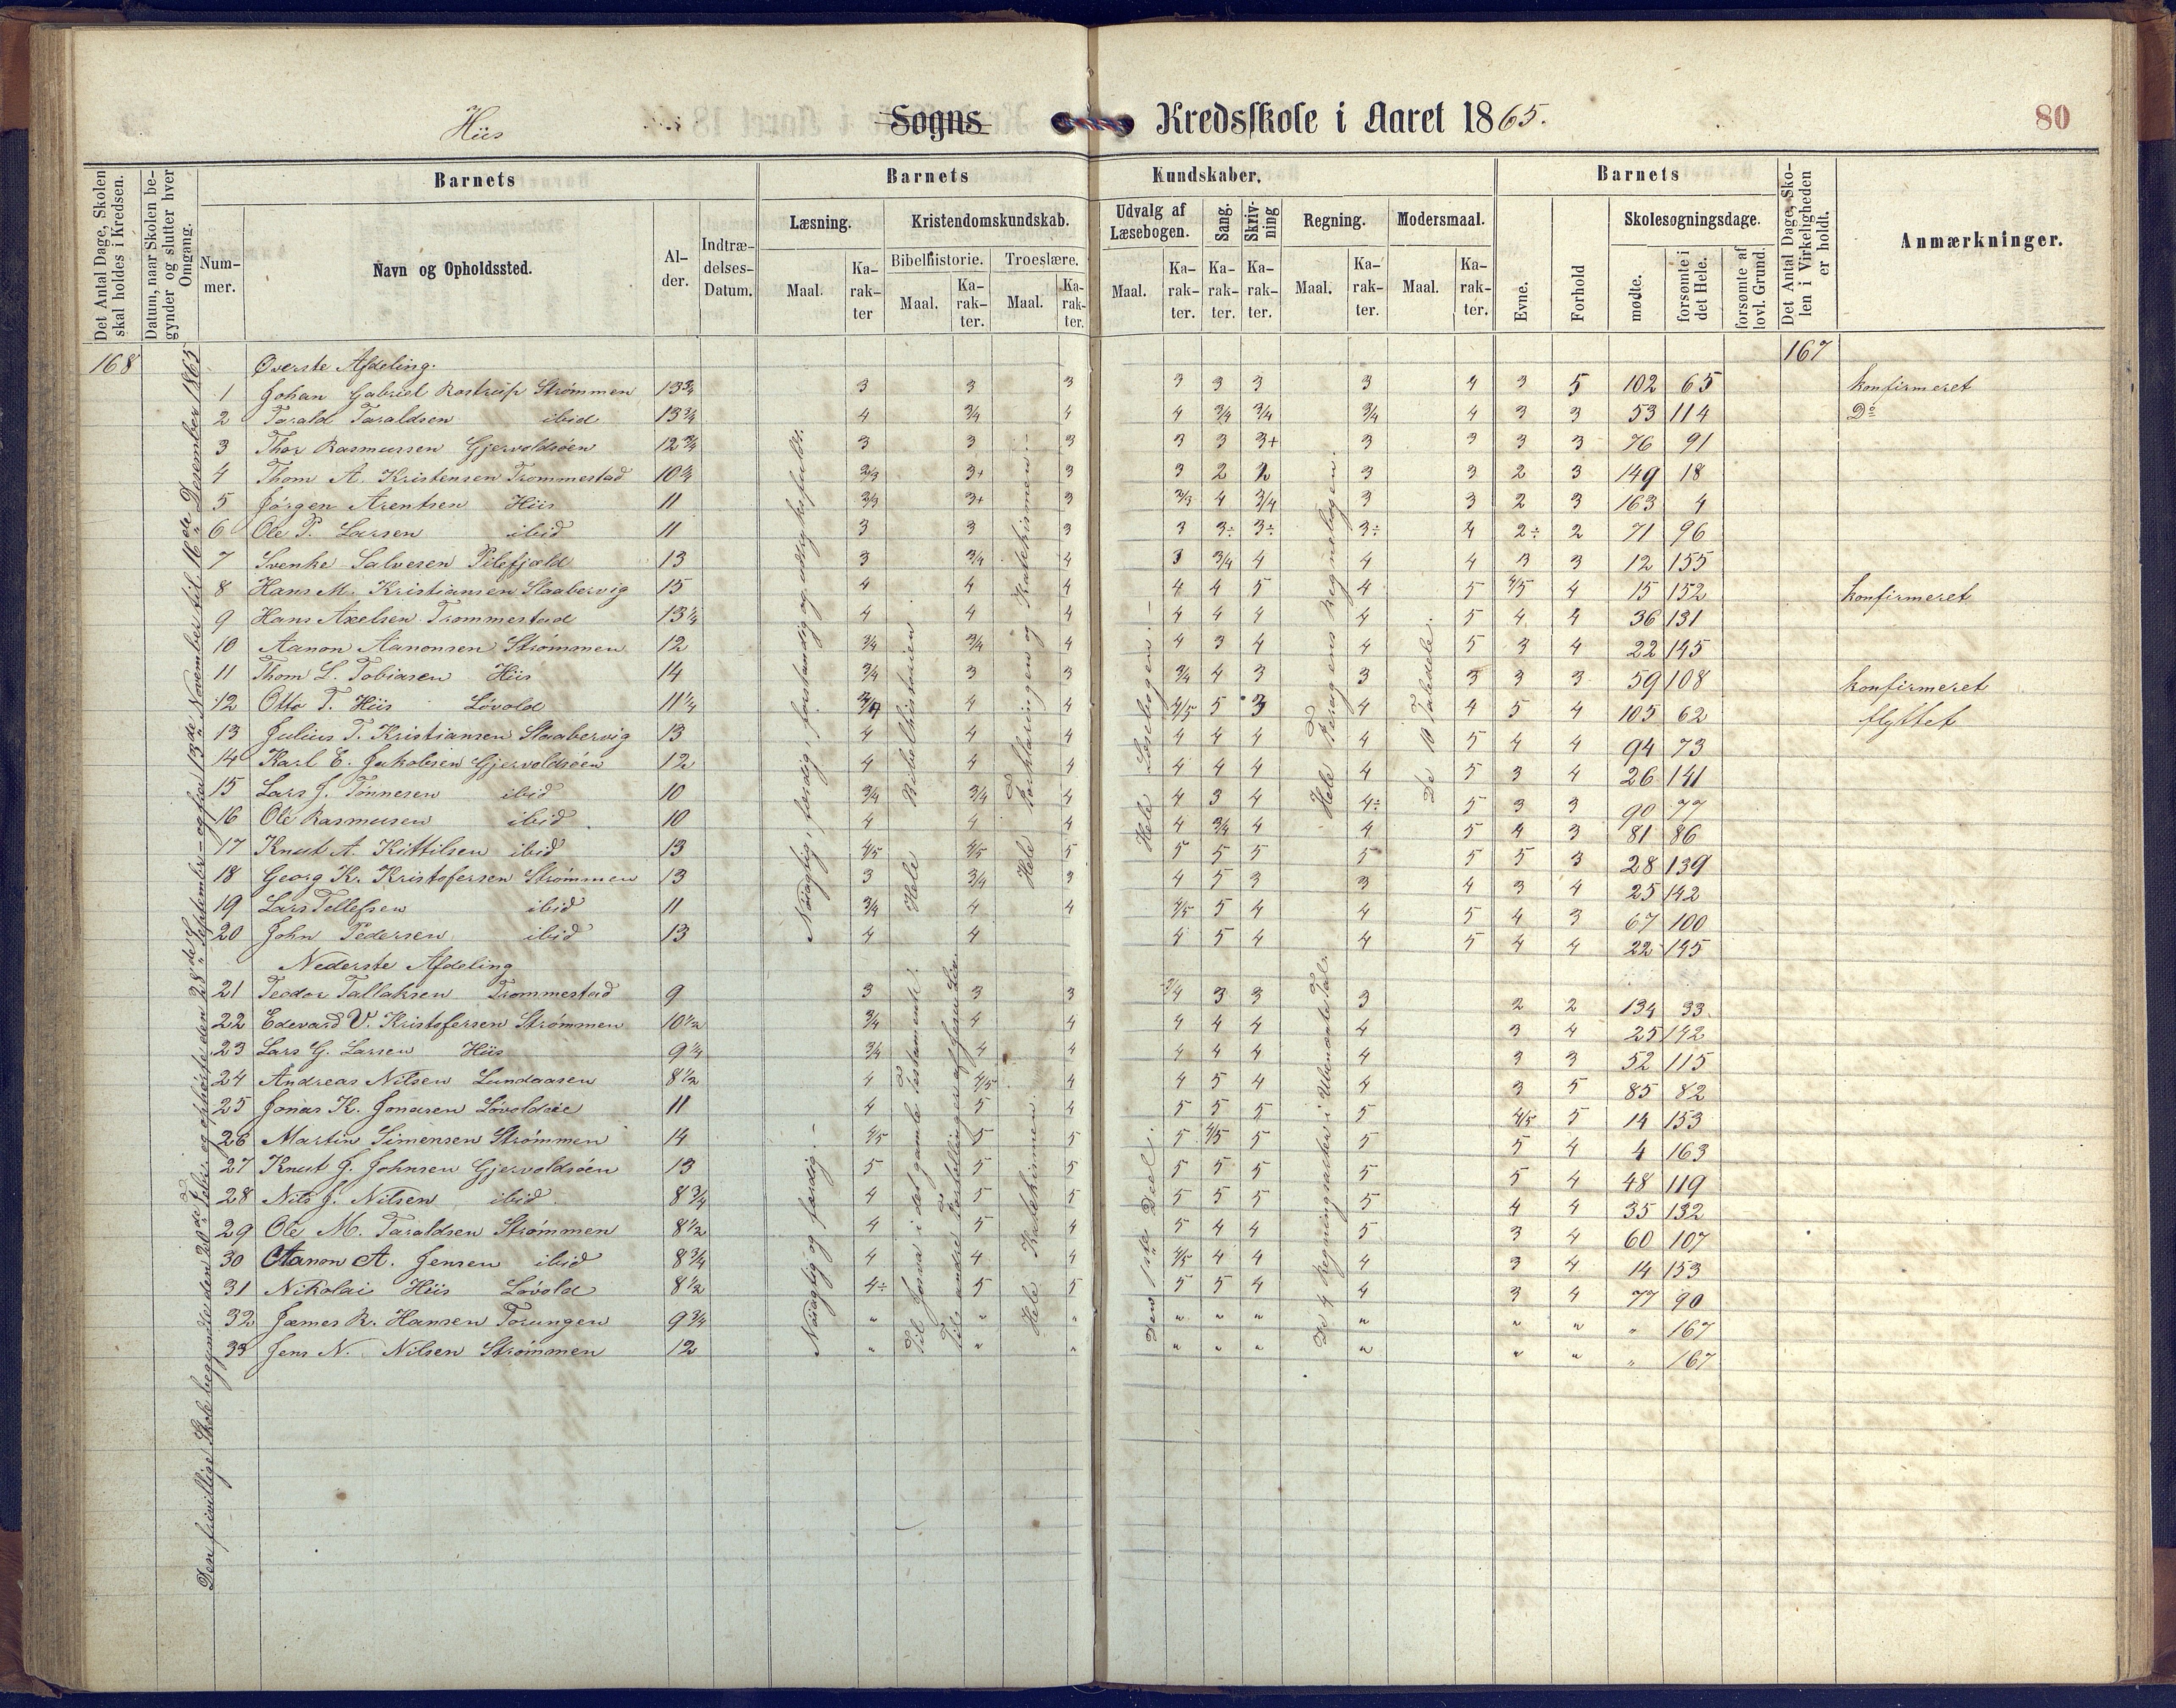 Hiis Sogns Kredsskole i Aaret 1865. 80
Det Antal Dage, Skolen skal holdes i Kredsen.
Datum, naar Skolen begynder og slutter hver Omgang.
Barnets
Nummer.
Navn og Opholdssted.
Alder.
Indtrædelses-Datum.
Barnets Kundskaber.
Læsning.
Maal. Karakter
Kristendomskundskab.
Bibelhistorie. Troeslære.
Maal. Karakter. Maal. Karakter.
Udvalg af Læsebogen.
Maal. Karakter.
Sang. Karakter.
Skrivning Karakter.
Regning.
Maal. Karakter.
Modersmaal.
Maal. Karakter.
Barnets
Evne. Forhold
Skolesøgningsdage.
mødte. forsømte i det Hele. forsømte af lovl. Grund.
Det Antal Dage, Skolen i Virkeligheden er holdt.
Anmærkninger.
168 Øverste Afdeling. 167
1 Johan Gabriel Rostrup Strømmen 13¾ 3 3 3 3 3 3 3 4 3 5 102 65 konfirmeret
2 Tarald Taraldsen ibid 13¾ 4 3/4 4 4 3/4 3/4 3/4 4 3 3 53 114 Do
3 Thor Rasmussen Gjervoldsøen 12¾ 3 3 3 3 3 3+ 3 3 3 3 76 91
4 Thom A. Kristensen Trommestad 10¾ 2/3 3+ 3 3 2 2 3 3 2 3 149 18
5 Jørgen Arentsen Hiis 11 2/3 3+ 3 2/3 4 3/4 3 3 2 3 163 4
6 Ole P. Larsen ibid 11 3 3 3 3 3÷ 3÷ 3÷ 4 2÷ 2 71 96
7 Svenke Salvesen Pilefjæld 13 3 3/4 4 3 3/4 4 4 4 3 3 12 155
8 Hans M. Kristiansen Slaabervig 15 4 4 4 4 4 5 4 5 4/5 4 15 152 konfirmeret
9 Hans Axelsen Trommestad 13¼ 4 4 4 4 4 4 4 5 4 4 36 131
10 Aanon Aanonsen Strømmen 12 3/4 3/4 4 4 3 4 4 5 3 4 22 145
11 Thom L. Tobiasen Hiis 14 3/4 3 3 3/4 4 3 3 3 3 3 59 108 konfirmeret
12 Otto T. Hiis Løvold 11¼ 3/4 4 4 4/5 5 3 4 4 5 4 105 62 flyttet
13 Julius T. Kristiansen Slaabervig 13 4 4 4 4 4 4 4 5 4 4 94 73
14 Karl E. Jakobsen Gjervoldsøen 12 4 4 4 4 4 4 4 5 3 4 26 141
15 Lars J. Tønnesen ibid 10 3/4 3/4 4 4 3 4 4÷ 5 3 3 90 77
16 Ole Rasmusen ibid. 10 4 4 4 4 3/4 4 4 5 4 3 81 86
17 Knut A. Kittilsen ibid 13 4/5 4/5 5 5 5 5 5 5 5 3 28 139
18 Georg K. Kristofersen Strømmen 13 3 3/4 3 4 5 3 3 4 3 4 25 142
19 Lars Tellefsen ibid 11 3/4 4 4 4/5 5 4 4 5 4 3 67 100
20 John Pedersen ibid 13 4 4 4 5 4 4 5 4 4 22 145
Nederste Afdeling
21 Teodor Tallaksen Trommestad 9 3 3 3 3/4 3 3 3 2 2 134 33
22 Edevard V. Kristofersen Strømmen 10½ 3/4 4 4 4 4 4 4 3 4 25 142
23 Lars G. Larsen Hiis 9¼ 3/4 4 4 4 4 4 4 3 3 52 115
24 Andreas Nilsen Lundaasen 8½ 4 4/5 4 4 5 4 4 3 5 85 82
25 Jonas K. Jonasen Løvoldøie 11 4 5 4 5 5 5 5 4/5 5 14 153
26 Martin Simensen Strømmen 14 4/5 5 5 5 4/5 5 5 5 4 4 163
27 Knut J. Johnsen Gjervoldsøen 13 5 5 5 5 5 5 5 5 4 48 119
28 Nils J. Nilsen ibid. 8¾ 4 5 5 5 5 5 5 4 4 35 132
29 Ole M. Taraldsen Strømmen 8½ 4 5 4 5 4 4 5 3 4 60 107
30 Aanon A. Jensen ibid 8¾ 4 4 4 4/5 4 4 4 3 4 14 153
31 Nikolai Hiis Løvold 8½ 4÷ 5 5 5 5 4 4 3 4 77 90
32 James R. Hansen Torungen 9¾ " " " " " " " " " " 167
33 Jens N. Nilsen Strømmen 12 " " " " " " " " " " 167
Den frivillige Skole begyndte den 20de Febr. og ophørte den 28de September – og fra 13de November til 16de Desember 1865
Nøiagtig, færdig, forstandig og udtryksfuldt.
Hele Bibelhistorien
Hele Forklaringen og Katekismen.
Hele Læsebogen.
Hele Bergens Regnebog.
De 10 Taledele.
Nøiagtig og færdig.
Til Josva i det gamle Testamente.
Til andre Fortællinger af Jesu Liv.
Hele Katekismen.
Den 1ste Deel.
De 4 Regningsarter i Ubenævnte Tal.